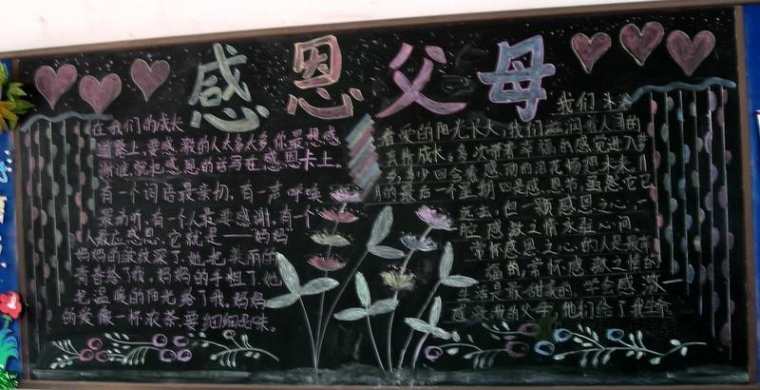 感恩父母
在我们的成长
道路上,要感激的人太多太多,你最想感
谢谁,就把感恩的话写在感恩卡上。
有一个词语最亲切,有一声呼唤
最动听,有一个人最要感谢,有一个
人最应感恩,它就是——妈妈
妈妈的皱纹深了,她把美丽的
青春给了我,妈妈的手粗了,她
把温暖的阳光给了我,妈妈
的爱像一杯浓茶,要细细品味。
我们沐
着爱的阳光长大,我们滋润着人间的
真情成长。多少次带着幸福的感觉进入梦
多少回含着感动的泪花畅想未来。
月的最后一个星期四是感恩节,虽然它已
远去,但一颗感恩之心,一
腔感激之情永驻心间。
常怀感恩之心的人是最幸
福的,常怀感激之情的
生活是最甜美的。学会感激
感激我的父母,他们给了我生命